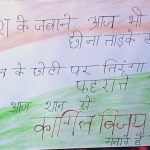 के जवाने आज भी
छीना ताड़के
के छोटी पर तिरंगा
फहराते
आज शान से
कारगिल विजय
मनाते है